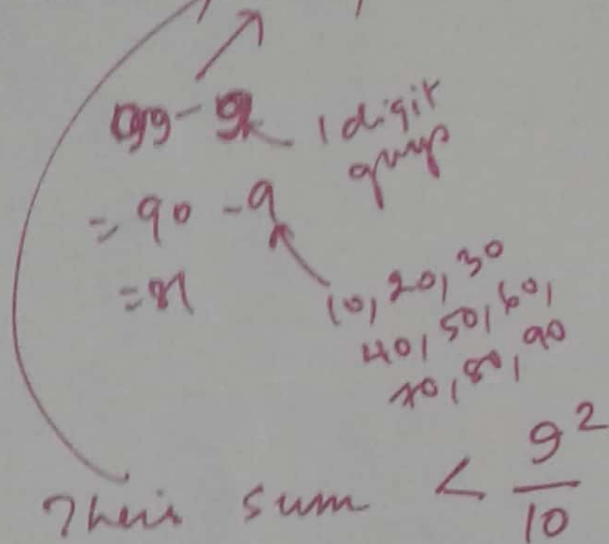 99 - 9 1 digit
group
= 90 - 9
= 81
10, 20, 30
40, 50, 60,
70, 80, 90
Their sum < 9²/10